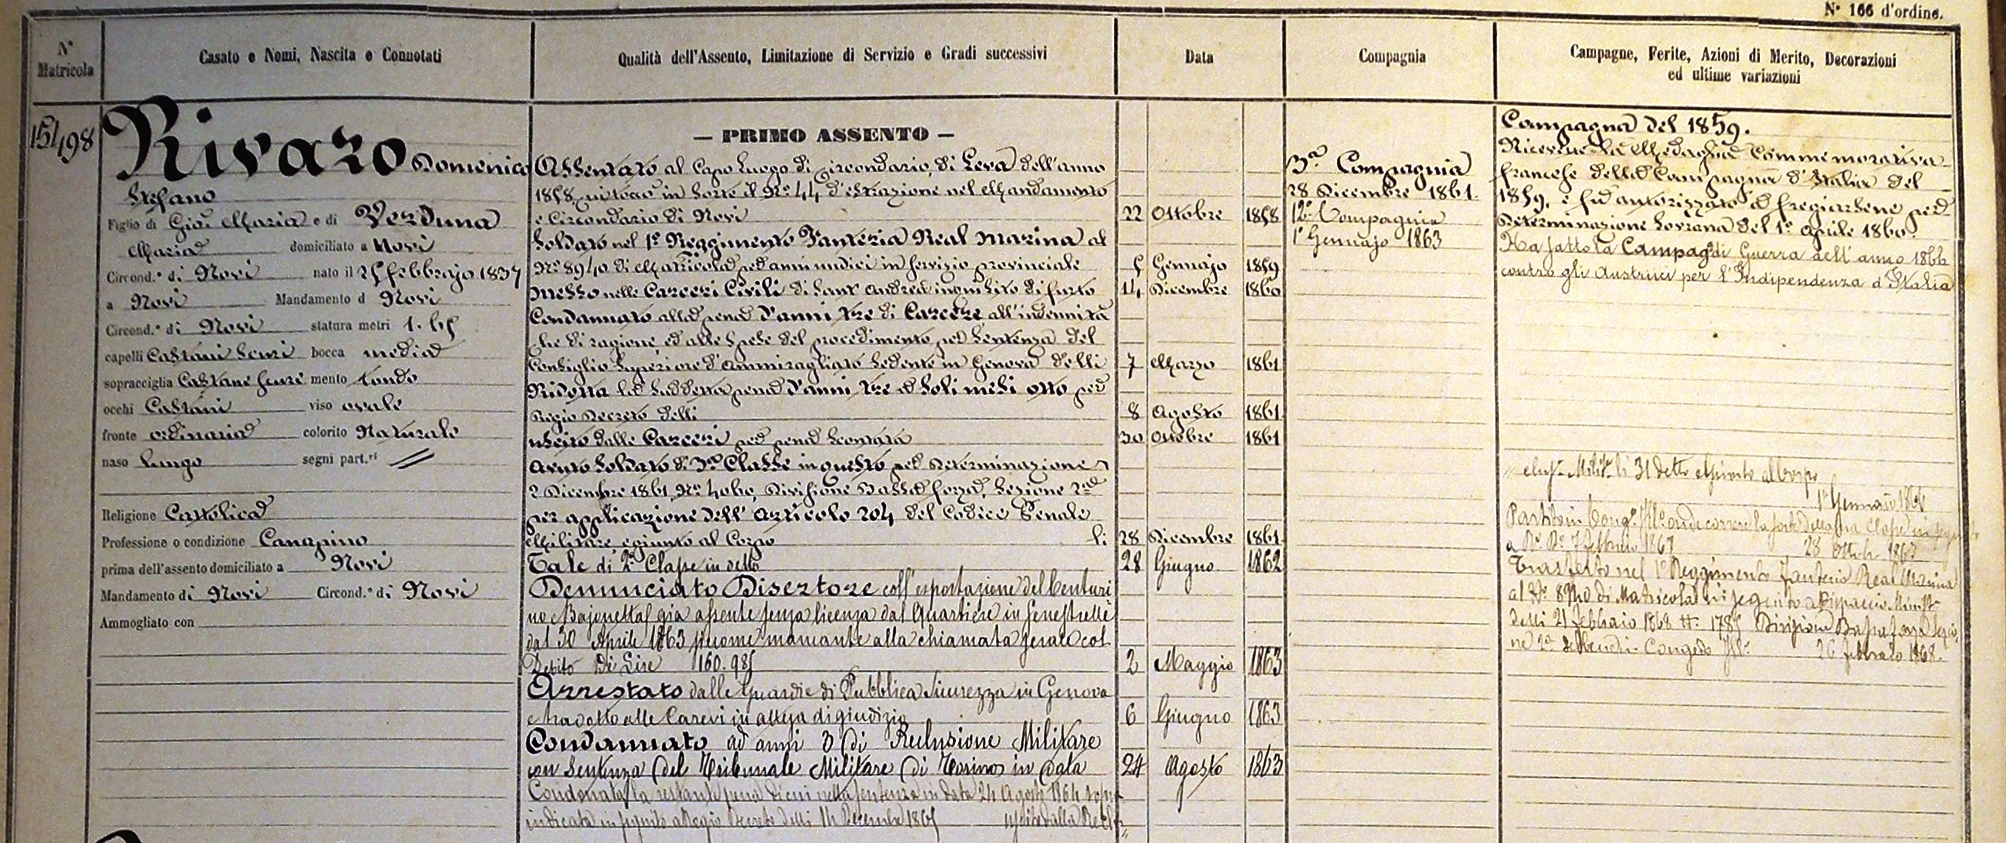 N° 166 d'ordine.
N° Matricola
Casato e Nomi, Nascita e Connotati
Qualità dell'Assento, Limitazione di Servizio e Gradi successivi
Data
Compagnia
Campagne, Ferite, Azioni di Merito, Decorazioni
ed ultime variazioni
15498
Rivaro Domenico
Stefano
Figlio di Gio: Maria e di Verduna
Maria domiciliato a Novi
Circond.° di Novi nato il 25 febbrajo 1837
a Novi Mandamento d Novi
Circond.° di Novi statura metri 1.65
capelli Castani scuri bocca media
sopracciglia Castane scure mento tondo
occhi Castani viso ovale
fronte ordinaria colorito Naturale
naso Lungo segni part.ri //
Religione Cattolica
Professione o condizione Canapino
prima dell'assento domiciliato a Novi
Mandamento di Novi Circond.° di Novi
Ammogliato con
— PRIMO ASSENTO —
Assentato al Capo Luogo di Circondario, di Leva dell'anno
1858 cui toccò in sorte il N° 44 d'estrazione nel Mandamento
e Circondario di Novi 22 Ottobre 1858
Soldato nel 1° Reggimento Fanteria Real Marina al
N° 8940 di Matricola per anni undici in servizio provinciale 5 Gennajo 1859
Messo nelle Carceri Civili di Sant' Andrea inquisito di furto 14 Dicembre 1860
Condannato alla pena d'anni tre di Carcere all'indennità
che di ragione ed alle spese del procedimento per sentenza del
Consiglio Superiore d'Ammiragliato sedente in Genova delli 7 Marzo 1861
Ridotta la suddetta pena d'anni tre a soli mesi otto per
Regio Decreto delli 8 Agosto 1861
Uscito dalle Carceri per pena scontata 30 Ottobre 1861
Avuto Soldato di 3a Classe in questo per Determinazione
2 Dicembre 1861, N° 4060, Divisione Bassa forza, Sezione 2a
per applicazione dell' Articolo 204 del Codice Penale
Militare, e giunto al Corpo li 28 Dicembre 1861
Tale di 2a Classe in detto 28 Giugno 1862
Denunciato Disertore coll'esportazione del Centuri
no Bajonetta già assente senza licenza dal Quartiere in Fenestrelle
dal 30 Aprile 1863 siccome mancante alla chiamata serale col
Debito Di Lire 160.985 2 Maggio 1863
Arrestato dalle Guardie di Pubblica Sicurezza in Genova
e tradotto alle Carceri in attesa di giudizio 6 Giugno 1863
Condannato ad anni 3 di Reclusione Militare
con Sentenza del Tribunale Militare di Torino in data 24 Agosto 1863
Condonata la restante pena di cui nella sentenza in data 24 Agosto 1864 sopra
indicata in seguito a Regio Decreto delli 14 Decembre 1865 uscito dalla
3a Compagnia
28 Dicembre 1861.
12a Compagnia
1° Gennajo 1863
Campagna del 1859.
Ricevette la Medaglia Commemorativa
francese della Campagna d'Italia del
1859. e fu autorizzato a fregiarsene per
Determinazione Sovrana del 1° Aprile 1860.
Ha fatto la Campag. di Guerra dell'anno 1866
contro gli Austriaci per l'Indipendenza d'Italia
Milit. li 31 detto e giunto al Corpo
1° Gennaio 1866
Partito in Cong.
28 Ottob. 1867
Trasferto nel 1° Reggimento Fanteria Real Marina
al N° 8940 di Matricola in seguito a Dispaccio Minist.
delli 21 febbraio 1868 N° 1785 Divisione Bassa forza Sezio
ne 2a Congedo Ill° 26 febbraio 1868.